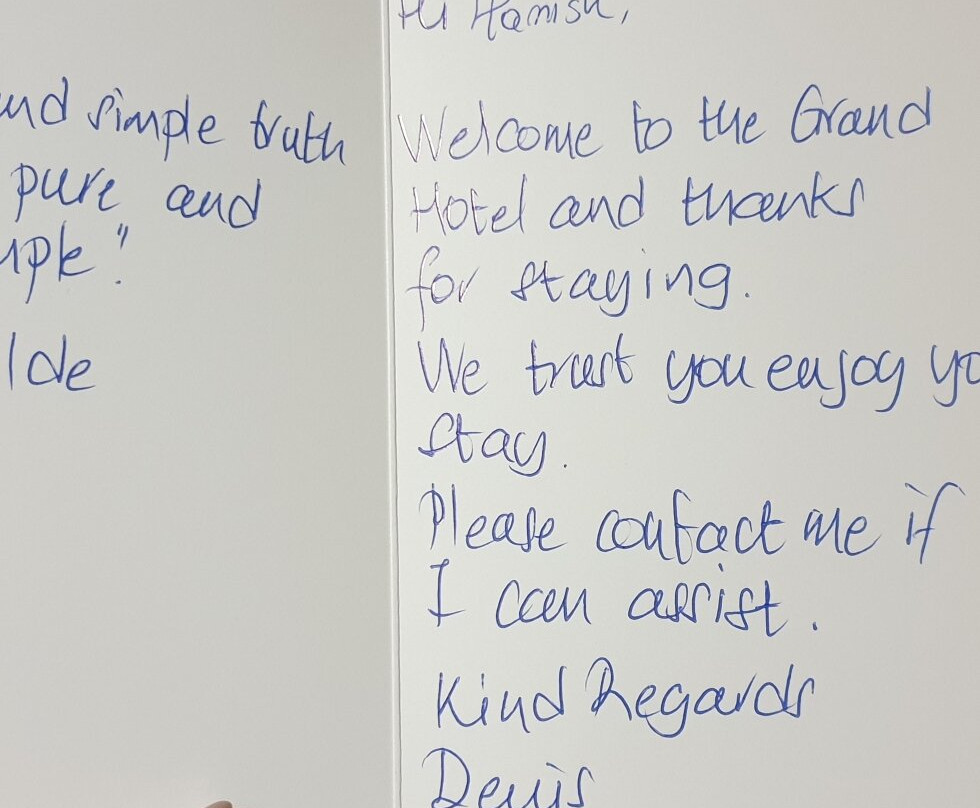 and simple truth
pure and
mple".
lde
Hi Hamish,
Welcome to the Grand
Hotel and thanks
for staying.
We trust you enjoy yo
stay.
Please contact me if
I can assist.
Kind Regards
Denis